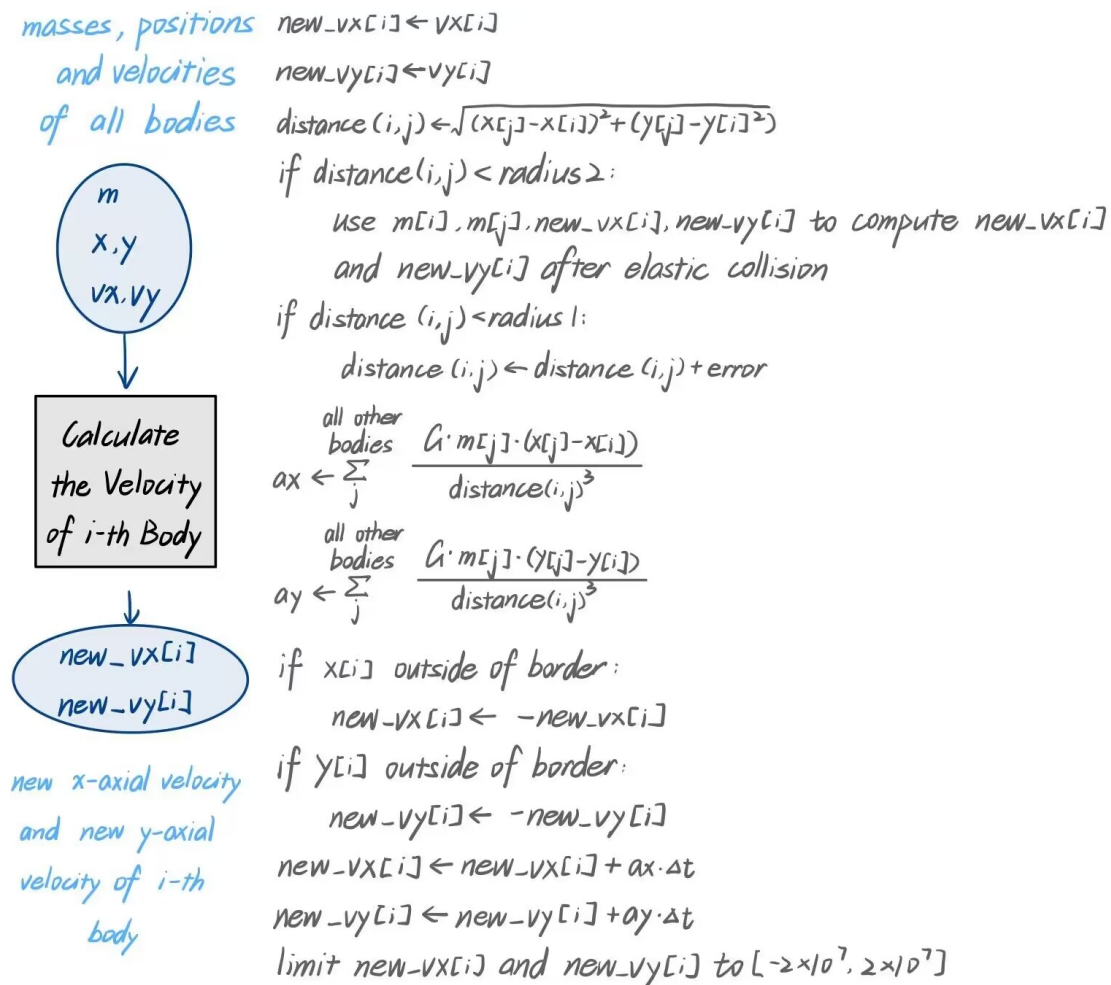 masses, positions
and velocities
of all bodies
m
x,y
vx,vy
Calculate
the Velocity
of i-th Body
new_vx[i]
new_vy[i]
new x-axial velocity
and new y-axial
velocity of i-th
body
new_vx[i]←vx[i]
new_vy[i]←vy[i]
distance(i,j)←√(x[j]-x[i])²+(y[j]-y[i]²)
if distance(i,j)<radius2:
use m[i],m[j],new_vx[i],new_vy[i] to compute new_vx[i]
and new_vy[i] after elastic collision
if distance (i,j)<radius1:
distance (i,j)←distance (i,j)+error
ax ← all other bodies ∑ j G·m[j]·(x[j]-x[i]) / distance(i,j)³
ay ← all other bodies ∑ j G·m[j]·(y[j]-y[i]) / distance(i,j)³
if x[i] outside of border:
new_vx[i]← -new_vx[i]
if y[i] outside of border:
new_vy[i]← -new_vy[i]
new_vx[i]←new_vx[i]+ax·Δt
new_vy[i]←new_vy[i]+ay·Δt
limit new_vx[i] and new_vy[i] to [-2×10⁷, 2×10⁷]